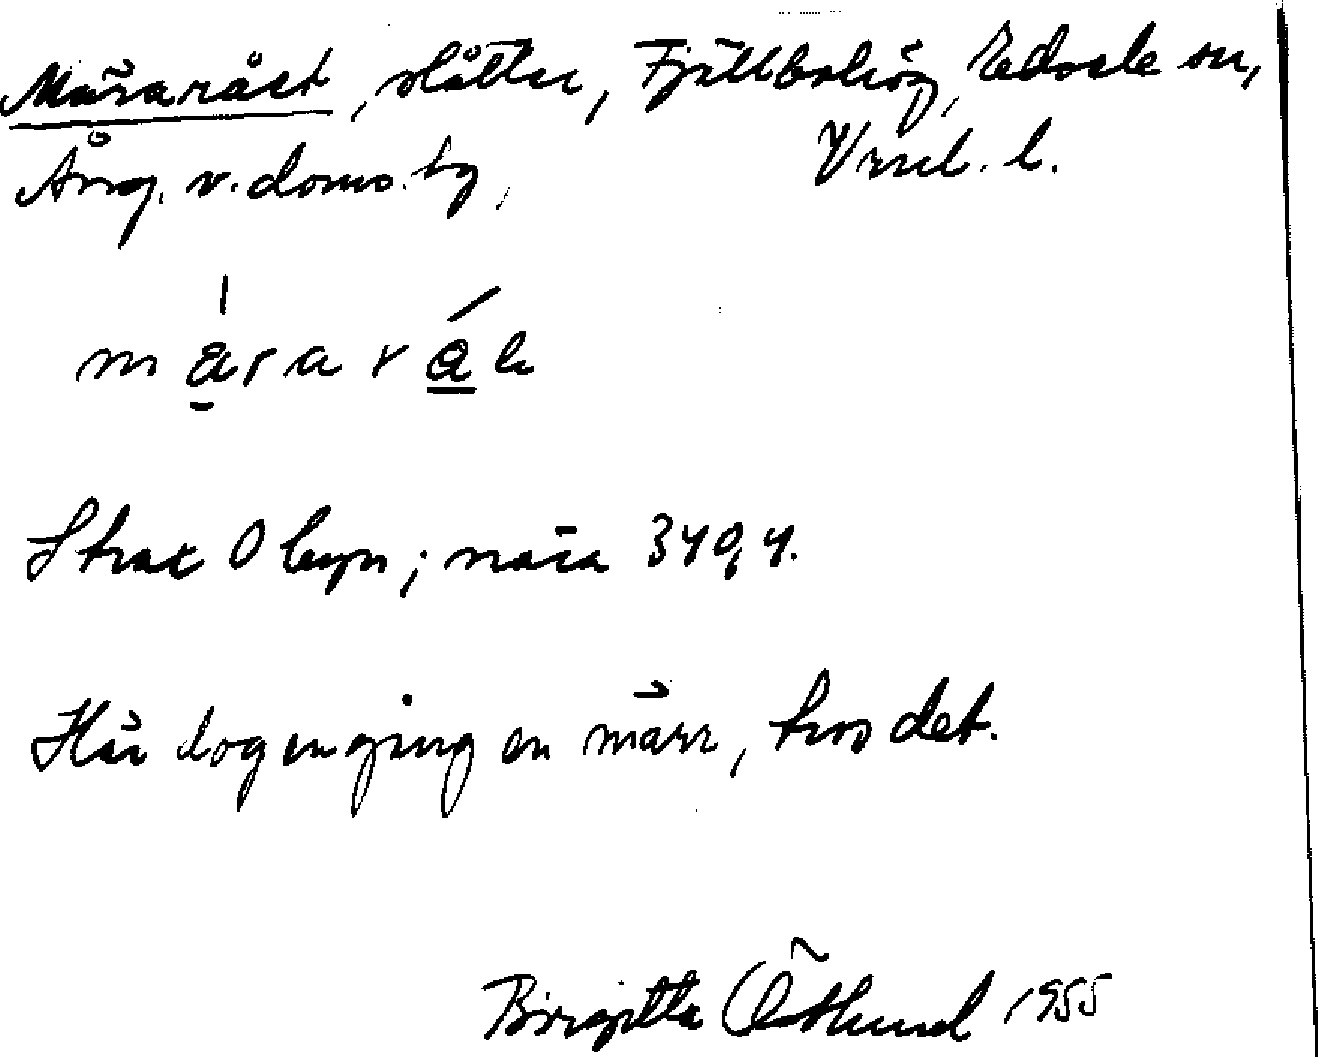 Märaråck, slåtter, Fjällbohög, Edsele sn,
Ång. v. doms. tg, Vrnl. l.
märaråk
Strax O byn; nära 3494.
Här dog en gång en märr, tros det.
Birgitta Östlund 1955